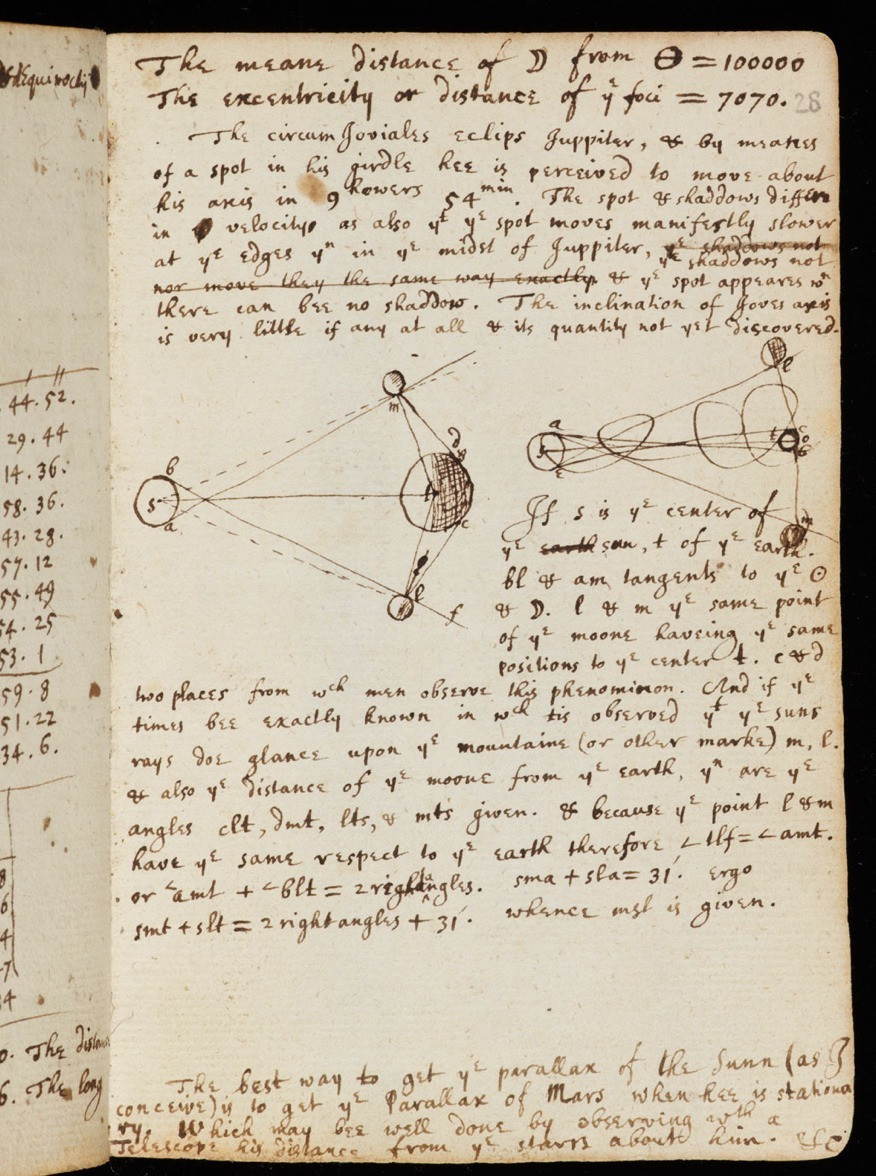 & Equinoctij
44. 52.
29. 44
14. 36.
58. 36.
43. 28.
57. 12
55. 49
54. 25
53. 1
59. 8
51. 22
34. 6.
0. The distan
6. The long
The meane distance of ☽ from ⊖ = 100000
The excentricity or distance of yᵉ foci = 7070.
28
The circumJoviales eclips Juppiter, & by meanes
of a spot in his girdle hee is perceived to move about
his axis in 9 howers 54 min. The spot & shaddows differ
in velocity as also yᵗ yᵉ spot moves manifestly slower
at yᵉ edges yⁿ in yᵉ midst of Juppiter, yᵉ shaddows not
yᵉ shaddows not
nor move they the same way exactly. & yᵉ spot appeares wⁿ
there can bee no shaddow. The inclination of Joves axis
is very little if any at all & its quantity not yet discovered.
m
d
b
s
a
t
c
l
f
e
a
s
c
t
m
If s is yᵉ center of
yᵉ earth sun, t of yᵉ earth.
bl & am tangents to yᵉ ☉
& ☽. l & m yᵉ same point
of yᵉ moone haveing yᵉ same
positions to yᵉ center t. c & d
two places from wᶜʰ men observe this phenominon. And if yᵉ
times bee exactly known in wᶜʰ tis observed yᵗ yᵉ suns
rays doe glance upon yᵉ mountaine (or other marke) m, l.
& also yᵉ distance of yᵉ moone from yᵉ earth, yⁿ are yᵉ
angles clt, dmt, lts, & mts given. & because yᵉ point l & m
have yᵉ same respect to yᵉ earth therefore ∠tlf = ∠amt.
or ∠amt + ∠blt = 2 right angles. sma + sla = 31′. Ergo
smt + slt = 2 right angles + 31′. whence msl is given.
The best way to get yᵉ parallax of the Sunn (as I
conceive) is to get yᵉ Parallax of Mars when hee is stationa
ry. Which may bee well done by observing wᵗʰ a
Telescope his distance from yᵉ starrs about him. &c